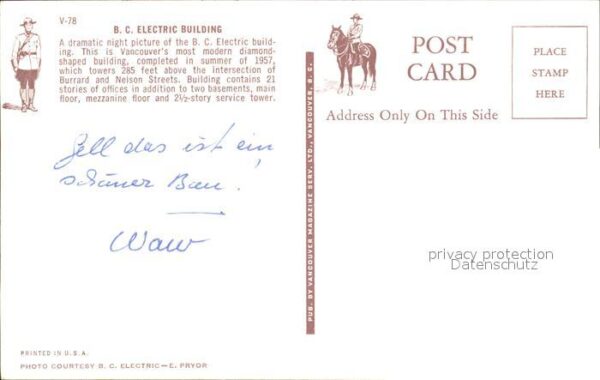 V-78
B. C. ELECTRIC BUILDING
A dramatic night picture of the B. C. Electric build-
ing. This is Vancouver's most modern diamond-
shaped building, completed in summer of 1957,
which towers 285 feet above the intersection of
Burrard and Nelson Streets. Building contains 21
stories of offices in addition to two basements, main
floor, mezzanine floor and 2½-story service tower.
Gell das ist ein
schöner Bau!
Waw
PRINTED IN U.S.A.
PHOTO COURTESY B. C. ELECTRIC—E. PRYOR
PUB. BY VANCOUVER MAGAZINE SERV. LTD., VANCOUVER, B. C.
POST
CARD
Address Only On This Side
PLACE
STAMP
HERE
privacy protection
Datenschutz